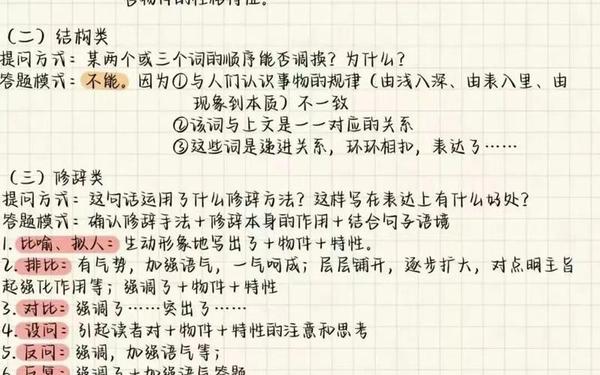 各物件的性格特征。
（二）结构类
提问方式：某两个或三个词的顺序能否调换？为什么？
答题模式：不能。因为①与人们认识事物的规律（由浅入深、由表入里、由
现象到本质）不一致
②该词与上文是一一对应的关系
③这些词是递进关系，环环相扣，表达了……
（三）修辞类
提问方式：这句话运用了什么修辞方法？这样写在表达上有什么好处？
答题模式：确认修辞手法+修辞本身的作用+结合句子语境
1.比喻、拟人：生动形象地写出了+物件+特性。
2.排比：有气势，加强语气，一气呵成；层层铺开，逐步扩大，对点明主旨
起强化作用等；强调了+物件+特性
3.对比：强调了……突出了……
4.设问：引起读者对+物件+特性的注意和思考
5.反问：强调，加强语气等；
6.反复：强调了+加强语气答题